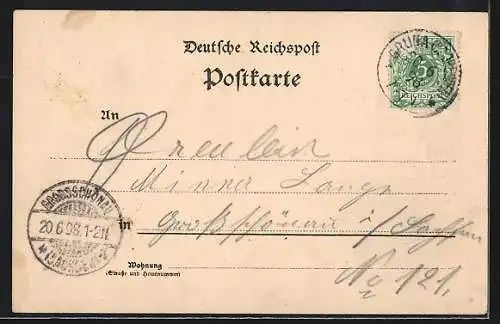 Deutsche Reichspost
Postkarte
An
Fräulein
Minna Lange
in Großschönau i/Sachsen
No 121.
Wohnung
(Straße und Hausnummer)
GROSSSCHÖNAU
20.6.98.1-2N
* (SACHSEN) *
5
REICHSPOST